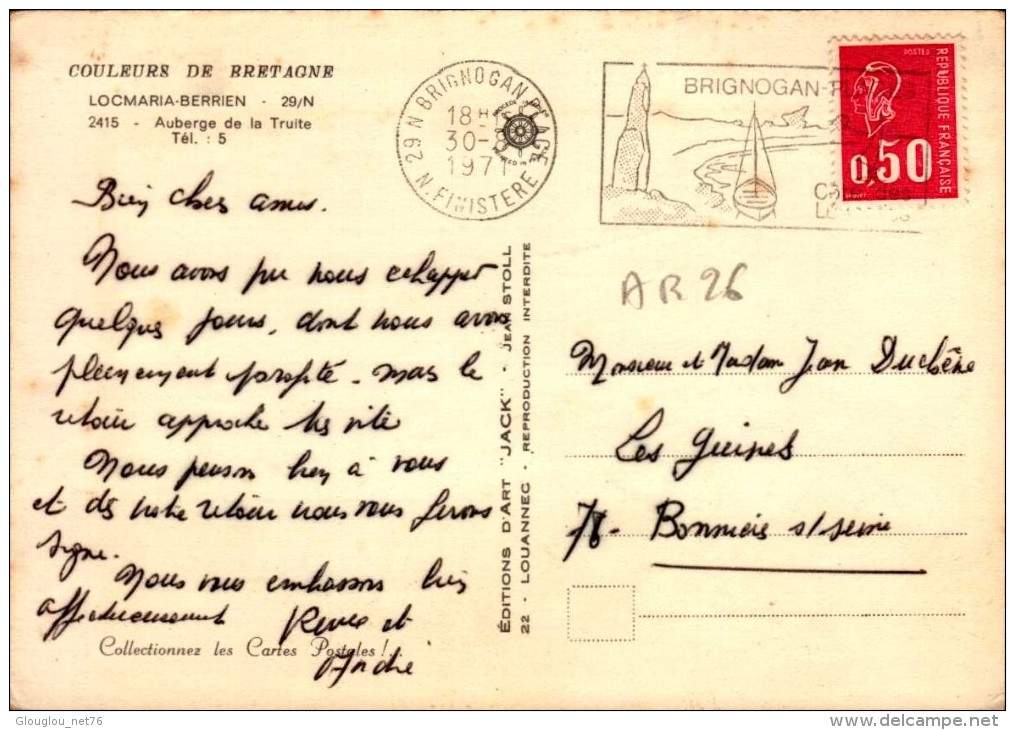 COULEURS DE BRETAGNE
LOCMARIA-BERRIEN - 29/N
2415 - Auberge de la Truite
Tél. : 5
29 N BRIGNOGAN PLAGE
18H
30-
1971
N. FINISTERE
BRIGNOGAN-P
POSTES
REPUBLIQUE FRANÇAISE
0,50
Bien chers amis.
Nous avons pu nous echapper
quelques jours, dont nous avons
pleinement profité. mais le
retour approche très vite
Nous pensons bien à vous
et dès notre retour nous vous ferons
signe.
Nous vous embrassons bien
affectueusement
et
André
Collectionnez les Cartes Postales !
ÉDITIONS D'ART "JACK" - JEAN STOLL
22 - LOUANNEC - REPRODUCTION INTERDITE
AR 26
Monsieur et Madam Jean Duchêne
Les Guinets
78 - Bonnières s/seine
Glouglou_net76
delcampe.net